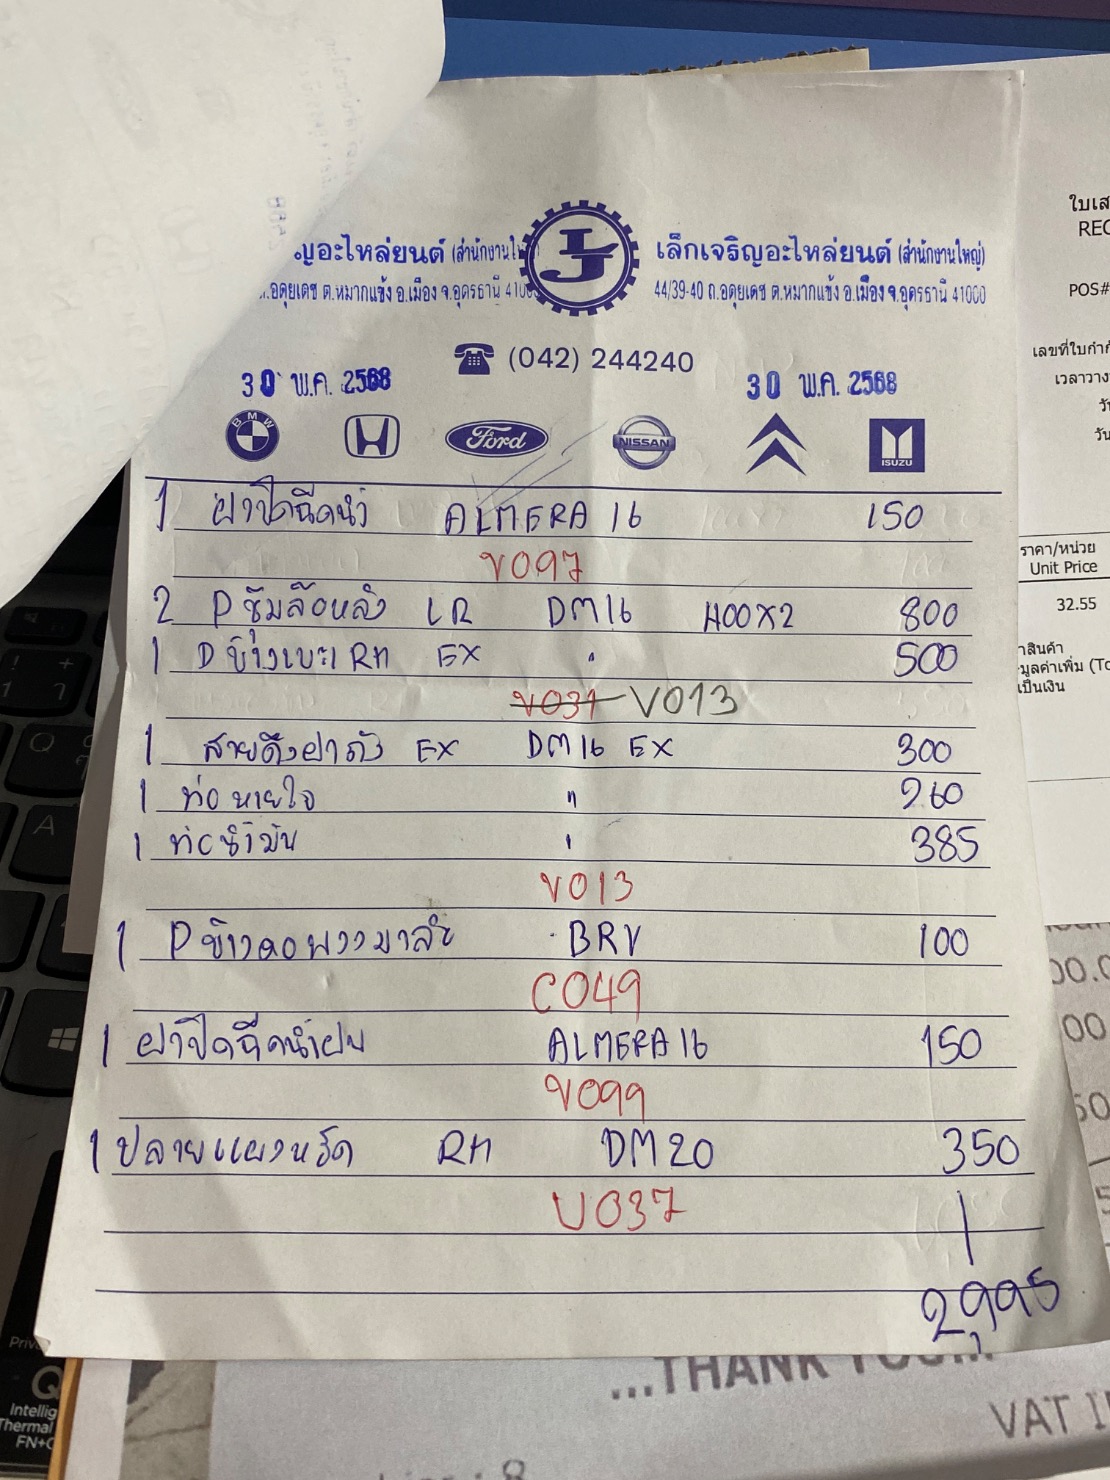 ญอะไหล่ยนต์ (สำนักงานใหญ่) LJ เล็กเจริญอะไหล่ยนต์ (สำนักงานใหญ่)
ถ.อดุยเดช ต.หมากแข้ง อ.เมือง จ.อุดรธานี 41000 44/39-40 ถ.อดุยเดช ต.หมากแข้ง อ.เมือง จ.อุดรธานี 41000
(042) 244240
30 พ.ค. 2568 30 พ.ค. 2568
BMW Ford NISSAN ISUZU
1 ฝาปิดฉีดน้ำ ALMERA 16 150
V097
2 P ซุ้มล้อหลัง LR DM16 400X2 800
1 P ข้างเบาะ RH EX " 500
V031 V013
1 สายดึงฝาถัง EX DM16 EX 300
1 ท่อหายใจ " 260
1 ท่อน้ำมัน " 385
V013
1 P ข้างคอพวงมาลัย BRV 100
C049
1 ฝาปิดฉีดน้ำฝน ALMERA 16 150
V099
1 ปลายแผงหรัด RH DM20 350
U037
2,995
ใบเส
REC
POS#
เลขที่ใบกำกั
เวลาวาง
วั
วัน
ราคา/หน่วย
Unit Price
32.55
าสินค้า
มูลค่าเพิ่ม (To
เป็นเงิน
...THANK YOU...
VAT I
Q
A
Intellig
Thermal
FN+